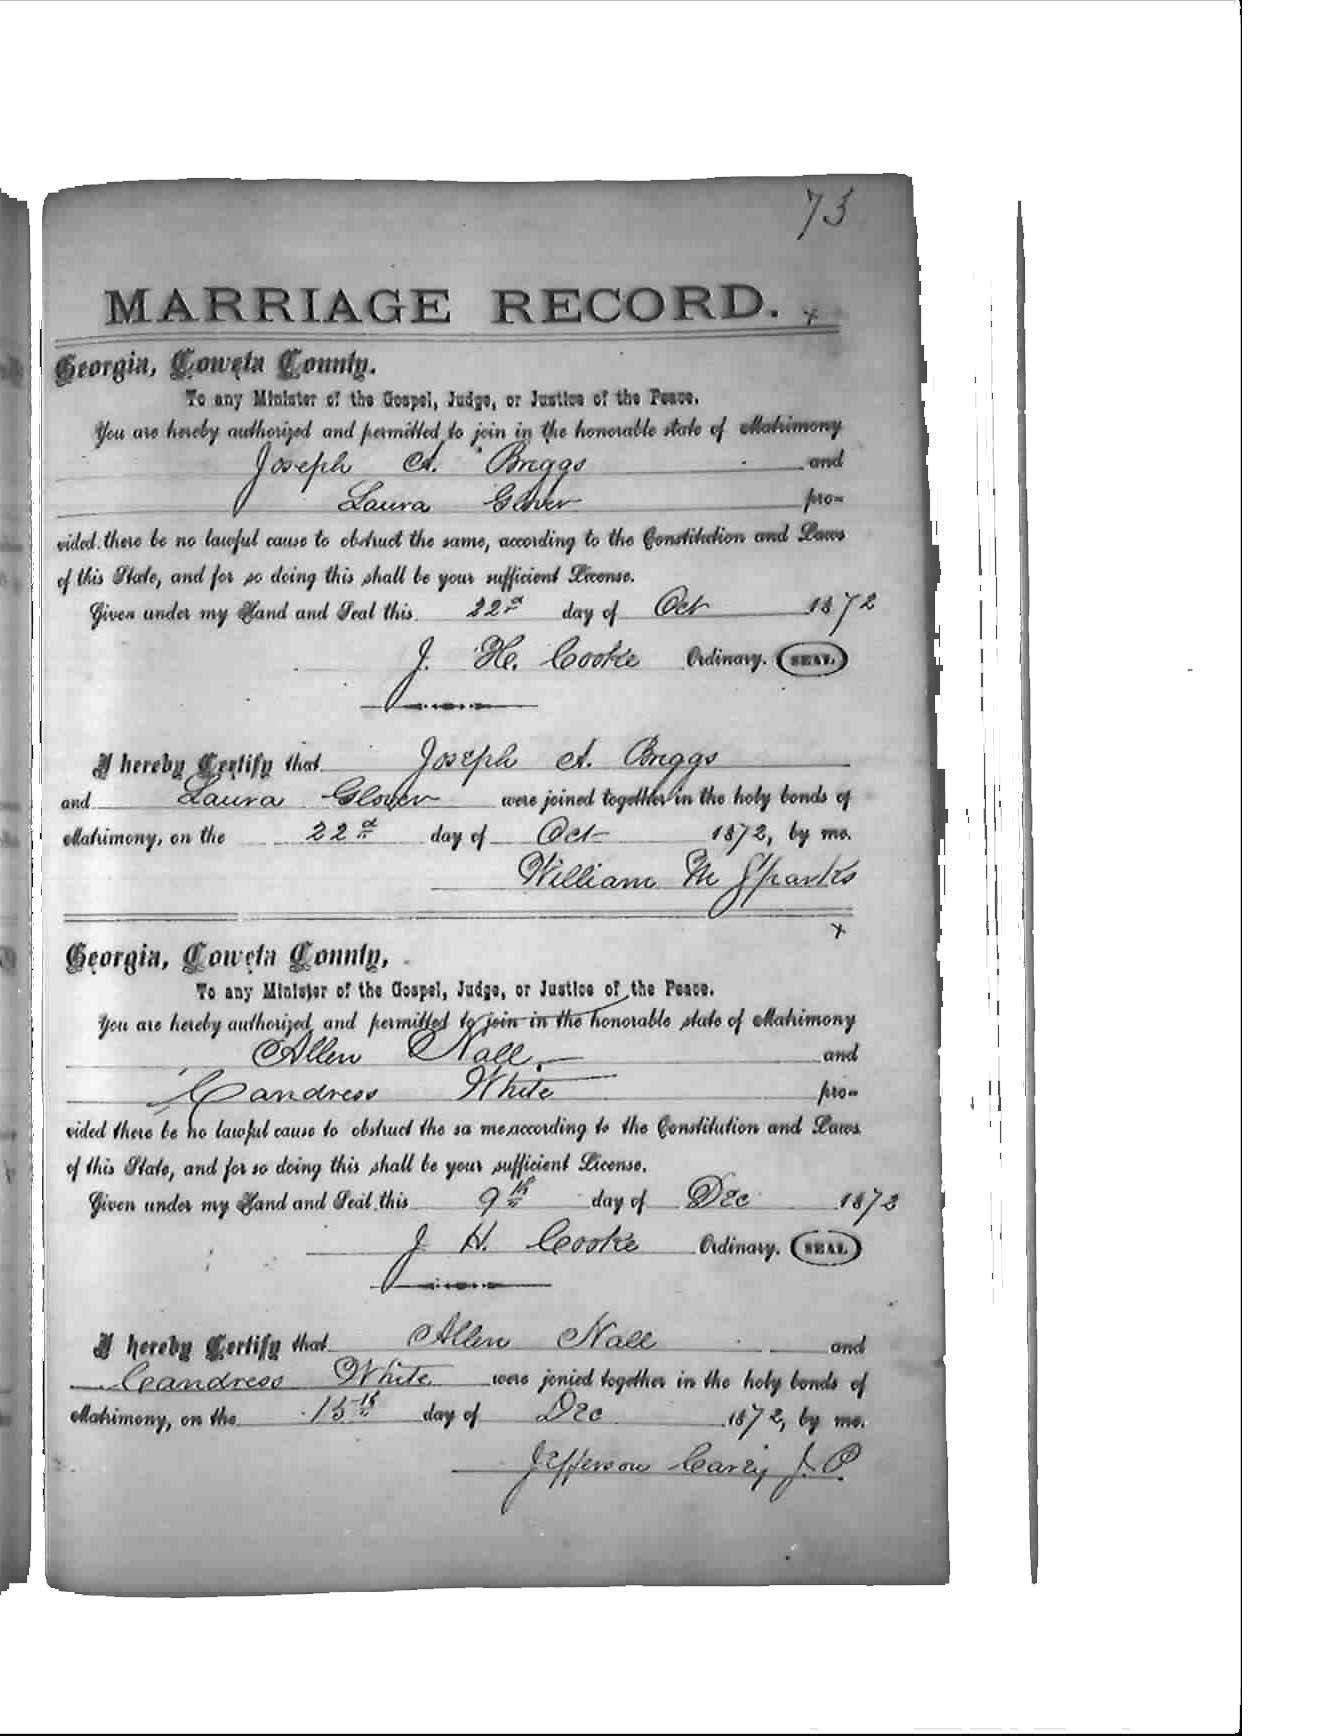 73
MARRIAGE RECORD. x
Georgia, Coweta County.
To any Minister of the Gospel, Judge, or Justice of the Peace.
You are hereby authorized and permitted to join in the honorable state of Matrimony
Joseph A. Briggs and
Laura Glover pro-
vided there be no lawful cause to obstruct the same, according to the Constitution and Laws
of this State, and for so doing this shall be your sufficient License.
Given under my Hand and Seal this 22d day of Oct 1872
J. H. Cooke Ordinary. SEAL.
I hereby Certify that Joseph A. Briggs
and Laura Glover were joined together in the holy bonds of
Matrimony, on the 22d day of Oct 1872, by me.
William M Sparks
x
Georgia, Coweta County,
To any Minister of the Gospel, Judge, or Justice of the Peace.
You are hereby authorized and permitted to join in the honorable state of Matrimony
Allen Nall and
Candress White pro-
vided there be no lawful cause to obstruct the sa me,according to the Constitution and Laws
of this State, and for so doing this shall be your sufficient License.
Given under my Hand and Seal this 9th day of Dec 1872
J H. Cooke Ordinary. SEAL.
I hereby Certify that Allen Nall and
Candress White were jonied together in the holy bonds of
Matrimony, on the 15th day of Dec 1872, by me.
Jefferson Carey J. P.